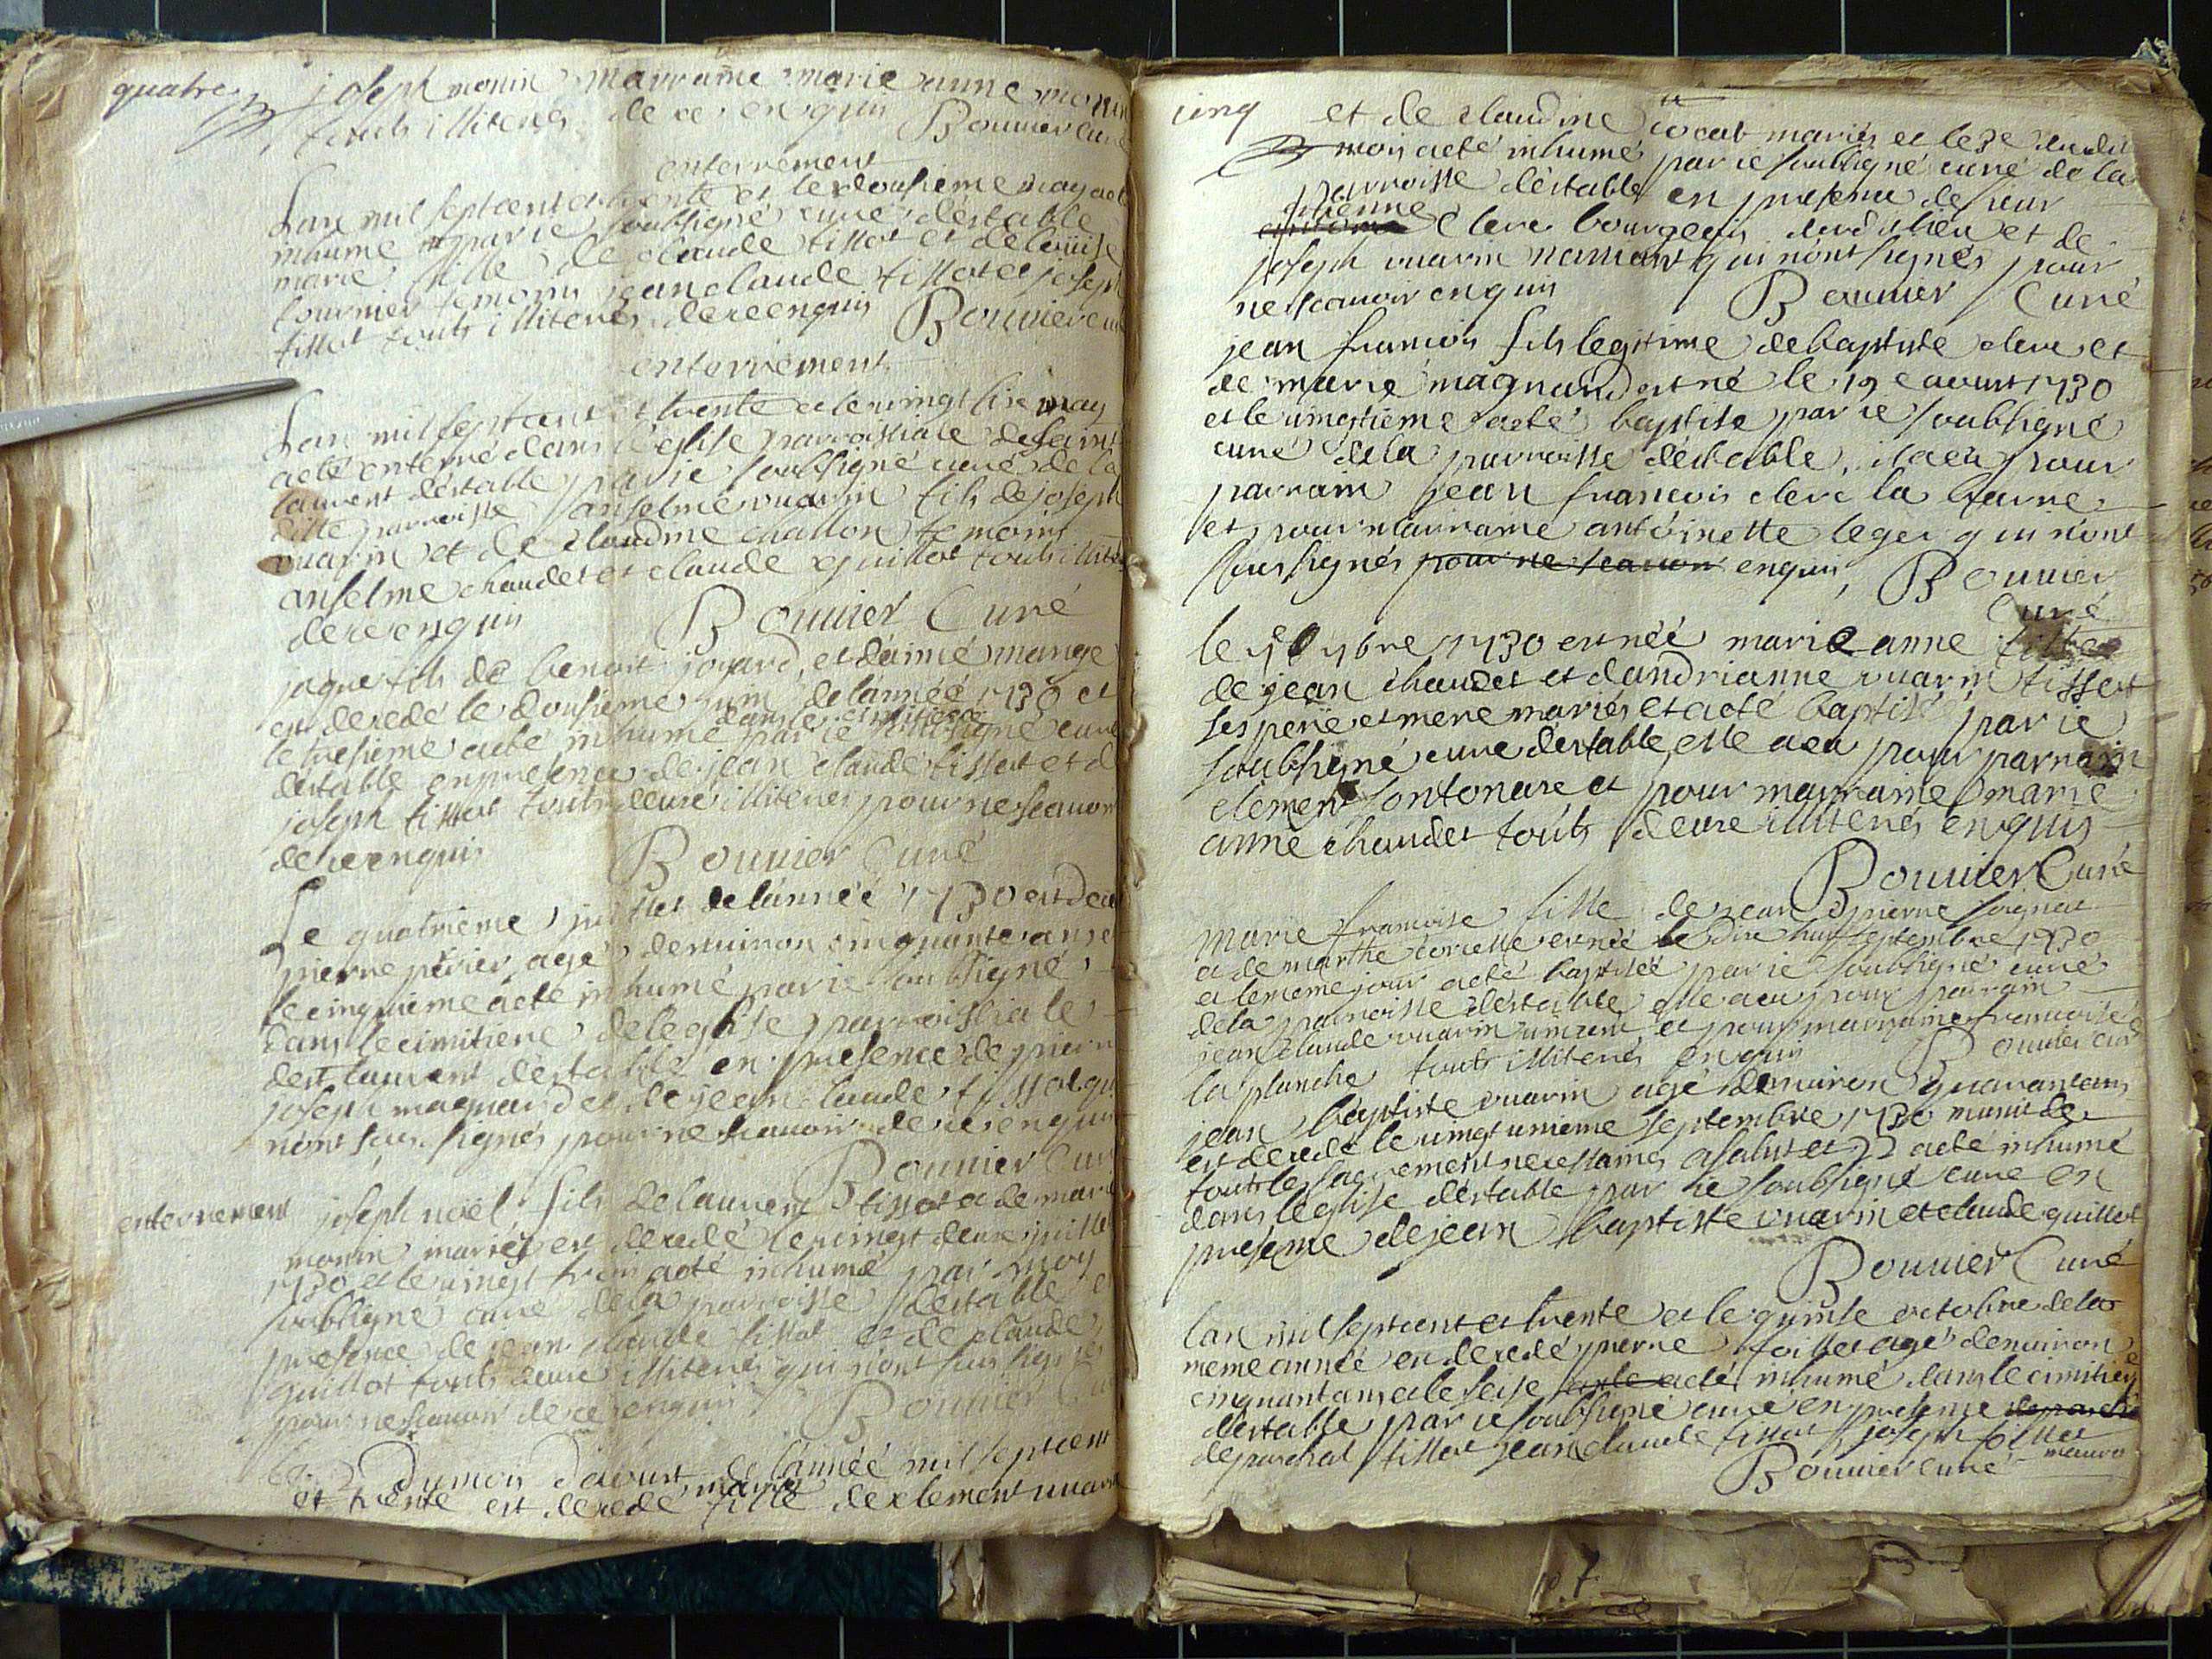 quatre
joseph monin marraine marie anne monin
touts illiteres de ce enquis Bouuier curé
enterrement
Lan mil septcent et trente et le dousieme may acté
inhumé par ie soubsigné curé déstable
marie fille de claude tissot et de louise
fournier temoins jean claude tissot et joseph
tissot touts illiteres de ce enquis Bouuier curé
enterrement
Lan mil septcent et trente et le uingt sixe may
acté enterré dans l'eglise parroissiale de saint
laurent déstable par ie soubsigné curé de la
ditte parroisse anselme uuarin fils de joseph
uuarin et de claudine challon temoins
anselme chaudet et claude guillot touts illiteres
de ce enquis Bouuier Curé
jaque fils de benoit joyard et daimé mange
est decedé le dousieme juin de lannéé 1730 et
dans le cimitiere
le tresieme acté inhumé par ie soubsigné curé
déstable en presence de jean claude tissot et de
joseph tissot touts deuxe illiteres pour ne scauoir
de ce enquis Bouuier Curé
Le quatrieme juillet de lánnéé 1730 est decedé
pierre périer agé denuiron cinquante ans et
le cinquieme acté inhumé par ie soubsigné
dans le cimitiere de leglise parroissiale
de st laurent déstable en presence de pierre
joseph magnard et de jean claude tissot qui
n'ont sous signés pour ne scauoir de ce enquis
Bouuier Curé
enterrement joseph noël fils de laurent tissot et de marie
monin mariés est decedé le uingt deuxe juillet
1730 et le uingt trois acté inhumé par moy
soubsigné curé de la parroisse déstable en
presence de jean claude tissot et de claude
guillot touts deuxe illiteres qui n'ont sous signés
pour ne scauoir de ce enquis Bouuier Cu
le 2 du mois daoust de lánnéé mil septcent
marie
et trente est decedé fille de clement uuarin
cinq
et de claudine cocat mariés et le 3e dudit
mois acté inhumé par ie soubsigné curé de la
parroisse déstable en presence de sieur
etienne
clerc bourgeois dudit lieu et de
joseph uuarin mamant qui nónt signés pour
ne scauoir enquis Bouuier Curé
jean francois fils legitime de baptiste clerc et
de marie magnard est né le 19 e aoust 1730
et le uingtieme acté baptisé par ie soubsigné
curé de la parroisse déstable, il a eu pour
parrain jean francois clerc la barre
et pour marraine antoinette leger qui n'ont
sous signés pour ne scauoir enquis, Bouuier
Curé
le 10 7bre 1730 est néé marie anne fille
de jean chaudet et dandrianne uuarin tissot
ses pere et mere mariés et acté baptisé par ie
soubsigné curé déstable, elle a eu pour parrain
clement fontonare et pour marraine marie
anne chaudet touts deuxe illiteres enquis
Bouuier Curé
marie francoise fille de jean pierre soignat
et de marthe est néé le dixe huit septembre 1730
et le meme jour acté baptiséé par ie soubsigné curé
de la parroisse déstable elle a eu pour parrain
jean claude uuarin et pour marraine francoise
la planche touts illiteres enquis Bouuier curé
jean baptiste uuarin agé denuiron quarantans
est decedé le uingt unieme septembre 1730 munit de
touts les sacrements necessaires a salut et 22 acté inhumé
dans leglise déstable par ie soubsigné curé en
presence de jean baptiste uuarin et claude guillot
Bouuier Curé
lan mil septcent et trente et le quinse octobre de la
meme année est decedé pierre foillet agé denuiron
cinquantans et le seise acté inhumé dans le cimitiere
déstable par ie soubsigné curé en presence
de parchat tissot jean claude tissot joseph foillet
Bouuier curé
7